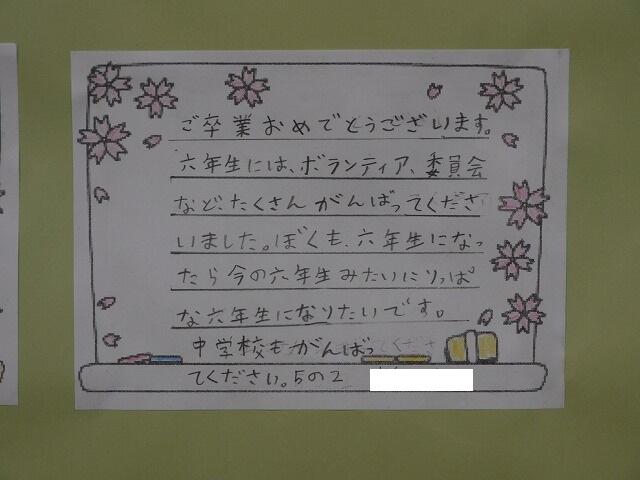 ご卒業おめでとうございます。
六年生には、ボランティア、委員会
など、たくさんがんばってくださ
いました。ぼくも、六年生になっ
たら今の六年生みたいにりっぱ
な六年生になりたいです。
中学校もがんばっ
てください。5の2